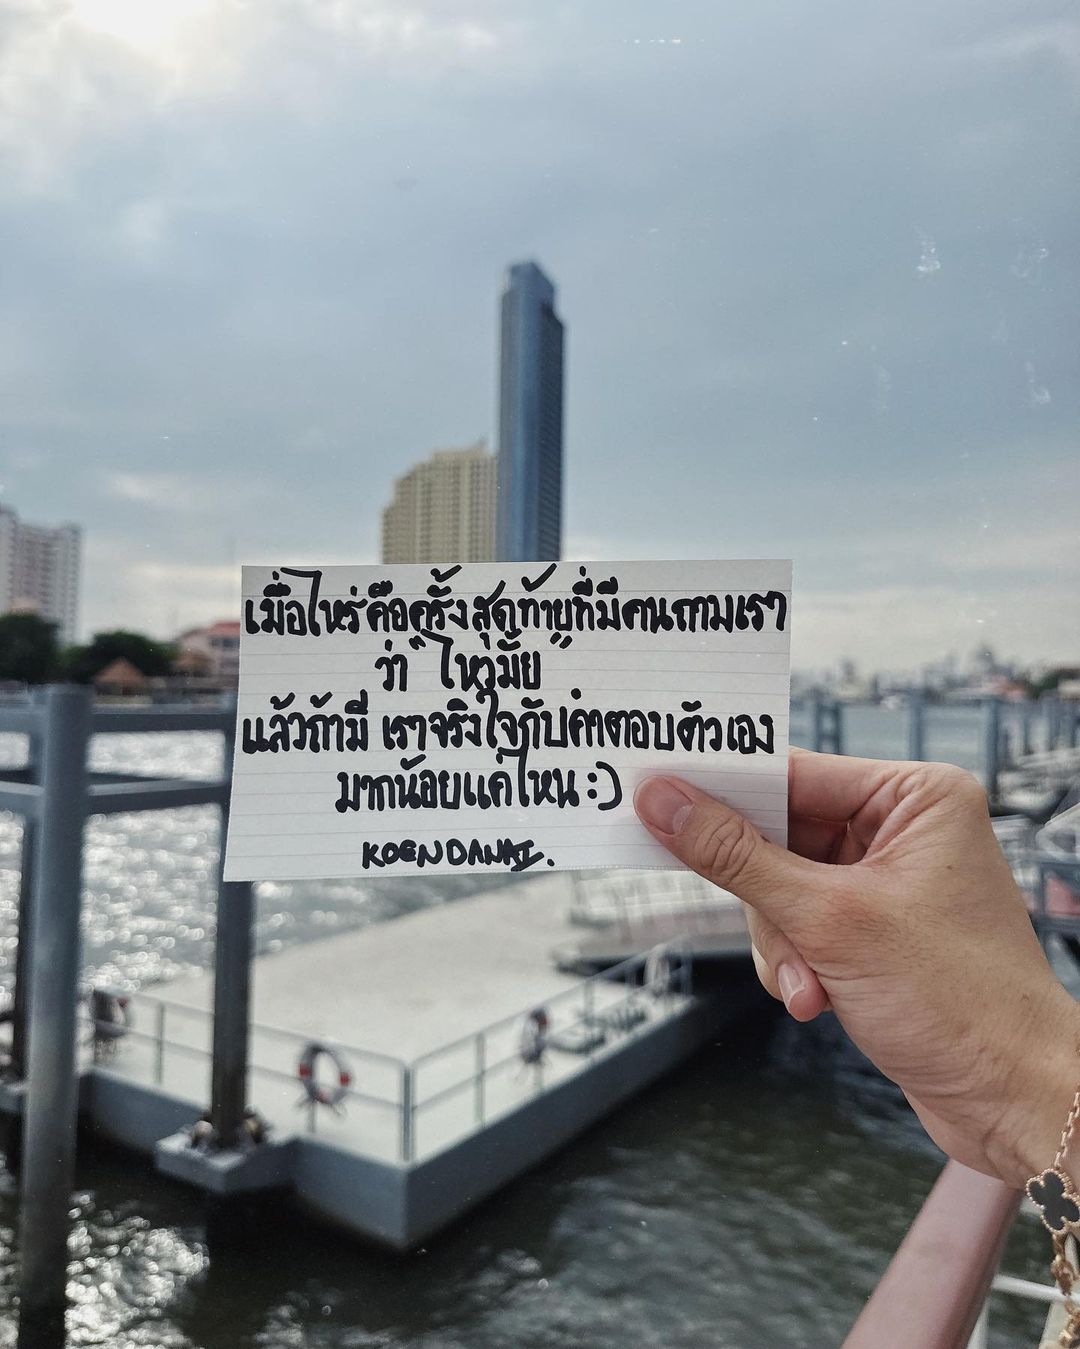 เมื่อไหร่คือครั้งสุดท้ายที่มีคนถามเรา
ว่า "ไหวมั้ย"
แล้วถ้ามี เราจริงใจกับคำตอบตัวเอง
มากน้อยแค่ไหน :)
KOENDANAI.